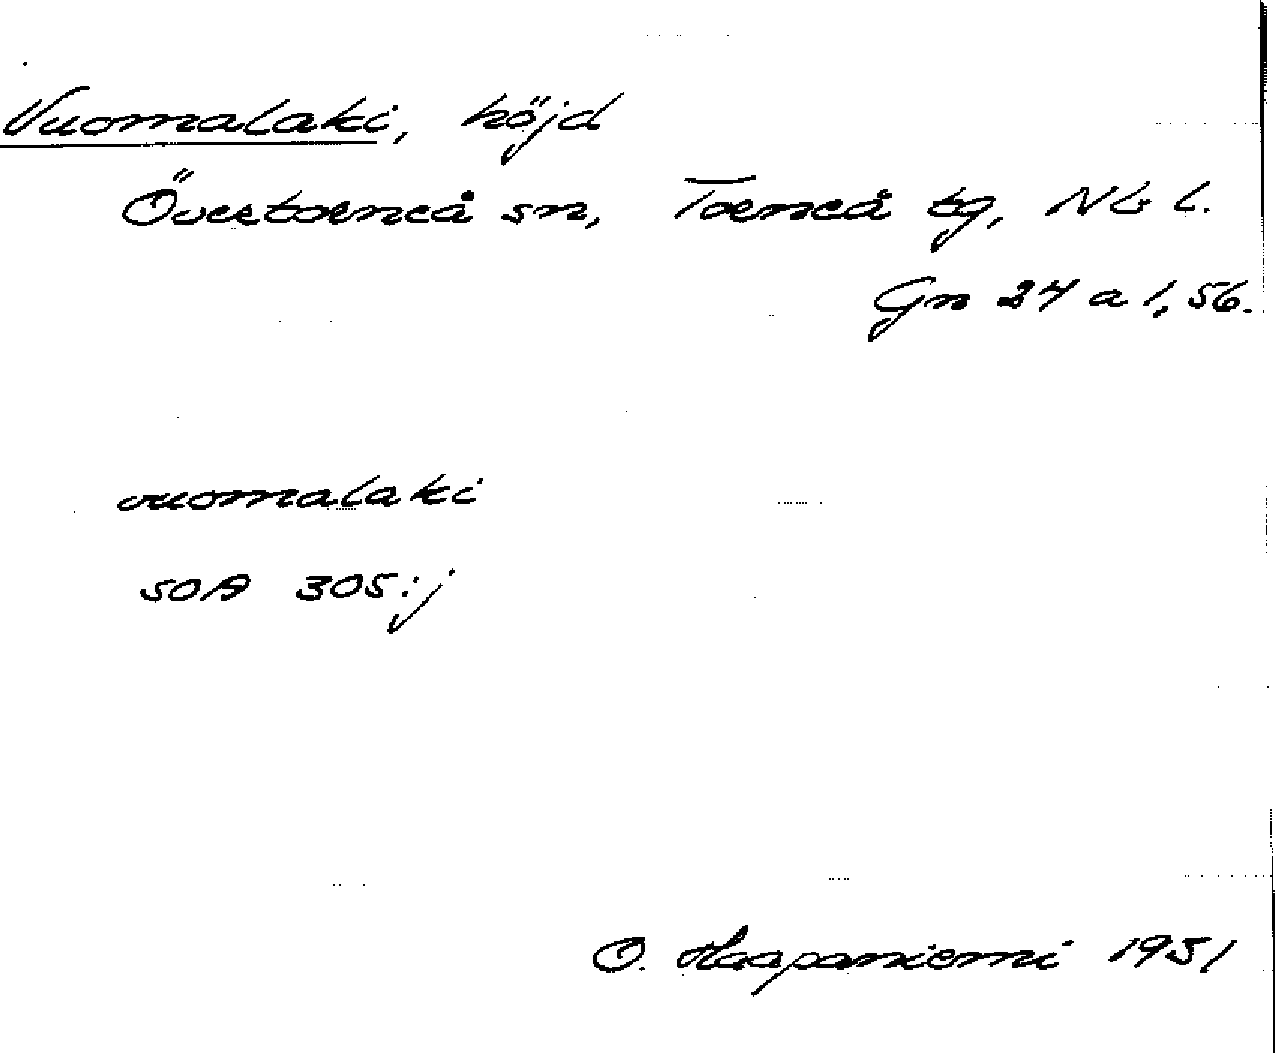 Vuomalaki, höjd
Övertorneå sn, Torneå tg, Nb l.
Gn 24 a 1, 56.
vuomalaki
SOA 305:j
O. Haapaniemi 1951